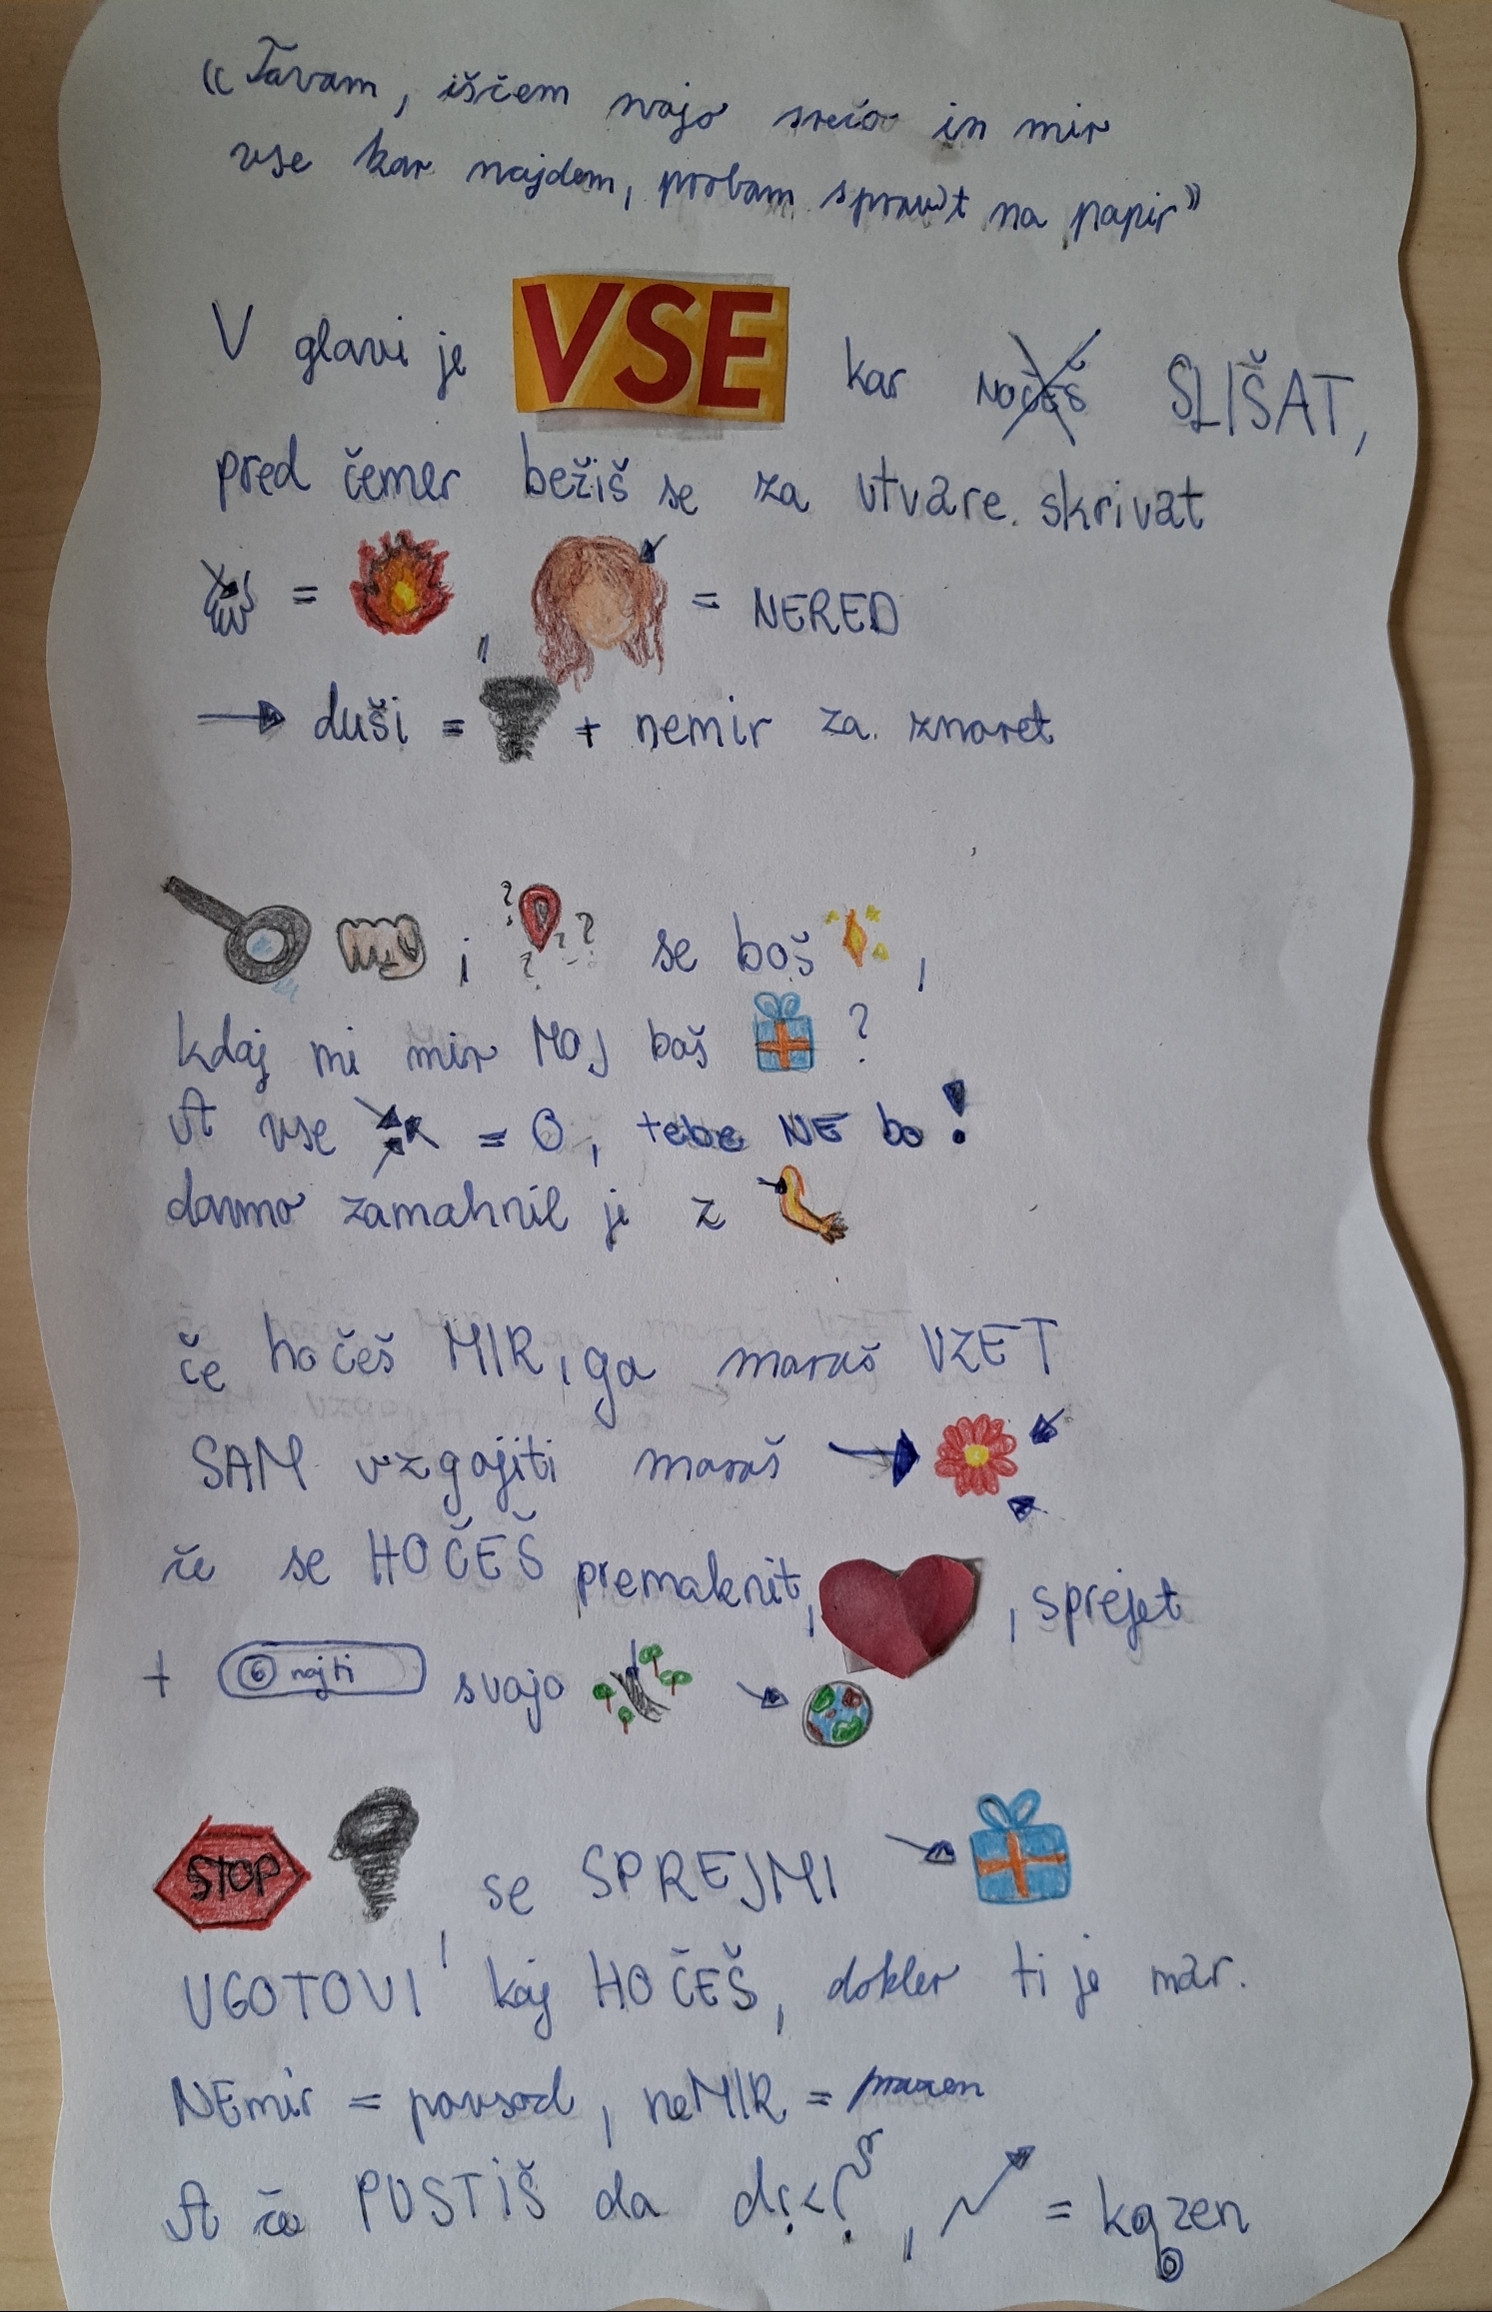 "Tavam, iščem svojo srečo in mir
vse kar najdem, probam spravit na papir"
V glavi je VSE kar nočeš SLIŠAT,
pred čemer bežiš se za utvare skrivat
= , = NERED
duši = + nemir za znoret
? ? ? ? se boš ,
kdaj mi mir MOJ boš ?
A vse = 0, tebe NE bo!
damo zamahnil je z
če hočeš MIR, ga moraš VZET
SAM vzgojiti moraš
če se HOČEŠ premaknit, , sprejet
+ najti svojo
STOP , se SPREJMI
UGOTOVI kaj HOČEŠ, dokler ti je mar.
NEmir = povsod, neMIR = prazen
A če PUSTIŠ da , = kazen